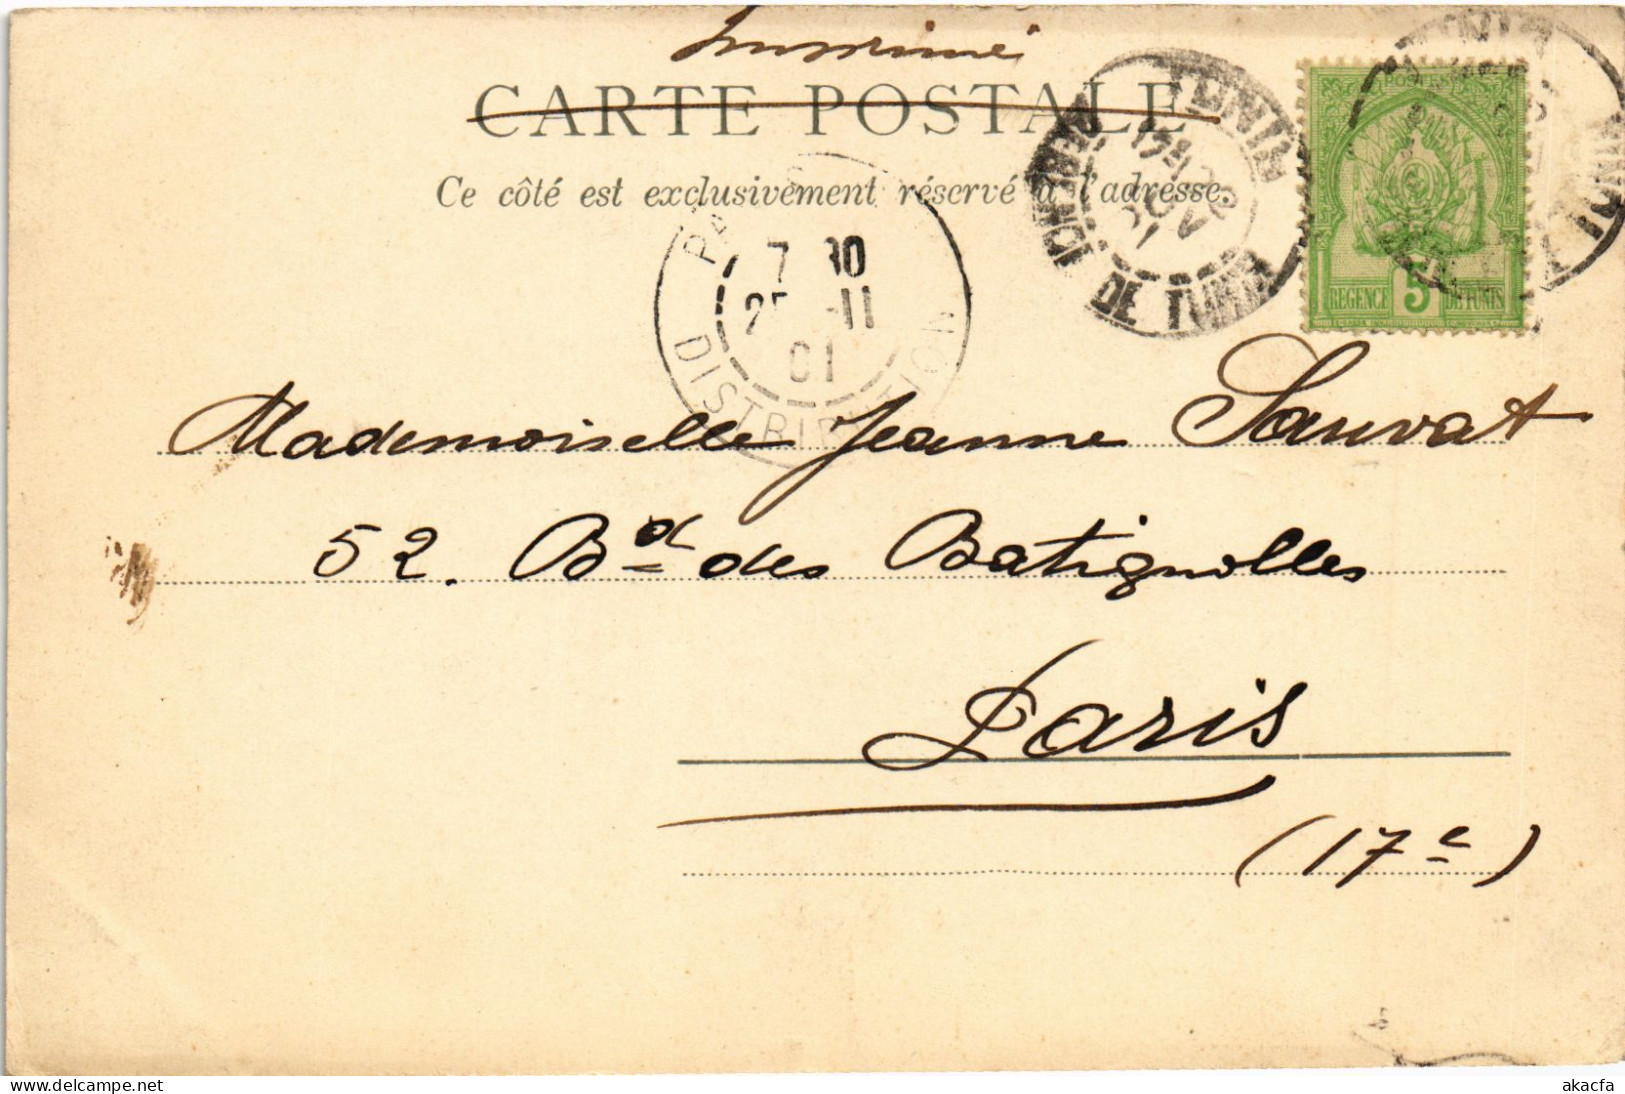 Imprimé
CARTE POSTALE
Ce côté est exclusivement réservé à l'adresse.
POSTES
REGENCE 5 DE TUNIS
TUNIS
DE TUNIS
7 30
25 -11
01
DISTRIBUTION
Mademoiselle Jeanne Sauvat
52. Bd des Batignolles
Paris
(17e)
www.delcampe.net
akacfa